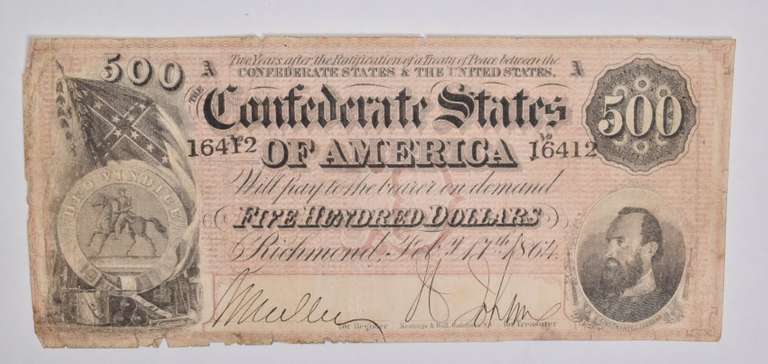 Two Years after the Ratification of a Treaty of Peace between the
500 A CONFEDERATE STATES & THE UNITED STATES. A
THE
Confederate States 500
16412 OF AMERICA No 16412
Will pay to the bearer on demand
DEO VINDICE
FIVE HUNDRED DOLLARS
Richmond, Feb. 17th 1864.
for Register Keatinge & Ball, Columbia, S.C. for Treasurer